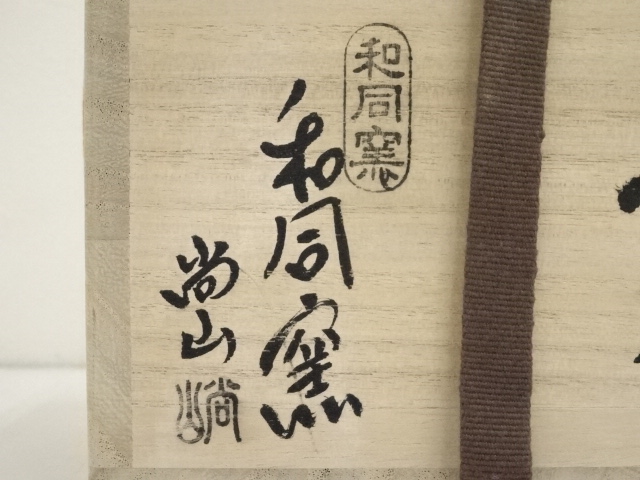 和同窯
和同窯
尚山
尚山